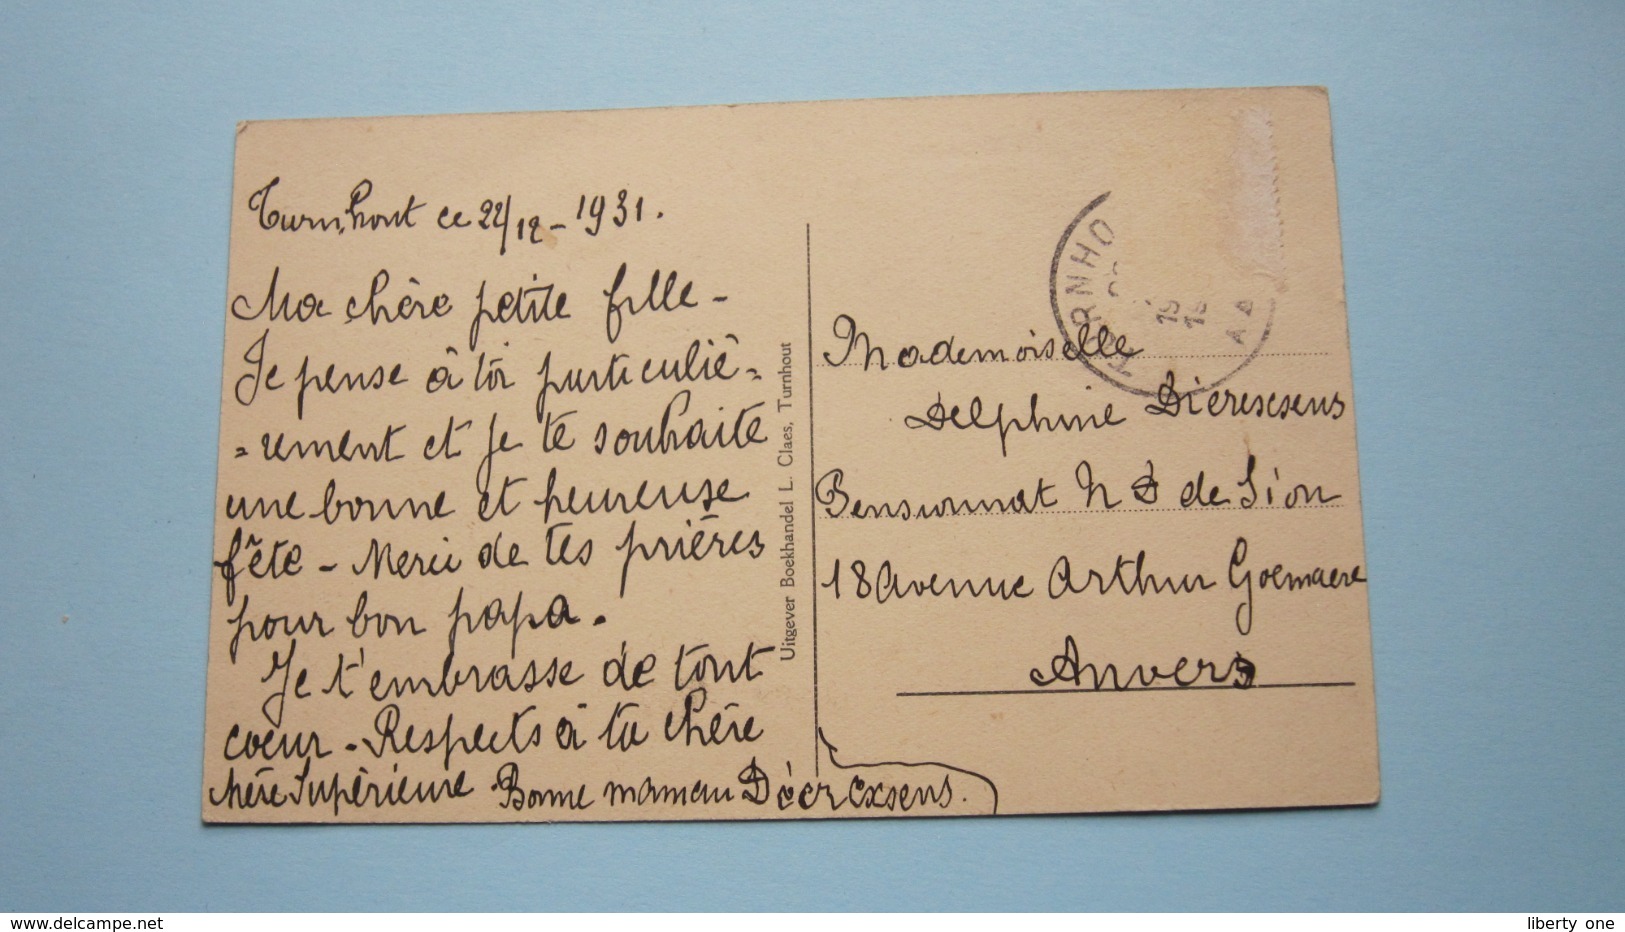 Turnhout ce 22/12 - 1931.
Ma chère petite fille -
Je pense à toi particuliè=
=rement et je te souhaite
une bonne et heureuse
fête - Merci de tes prières
pour bon papa.
Je t'embrasse de tout
coeur - Respects à ta chère
Mère Supérieure Bonne maman
Uitgever Boekhandel L. Claes, Turnhout
TURNHO
19
19
Mademoiselle
Delphine
Pensionnat N D de Sion
18 avenue Arthur Goemaere
Anvers
www.delcampe.net
liberty_one